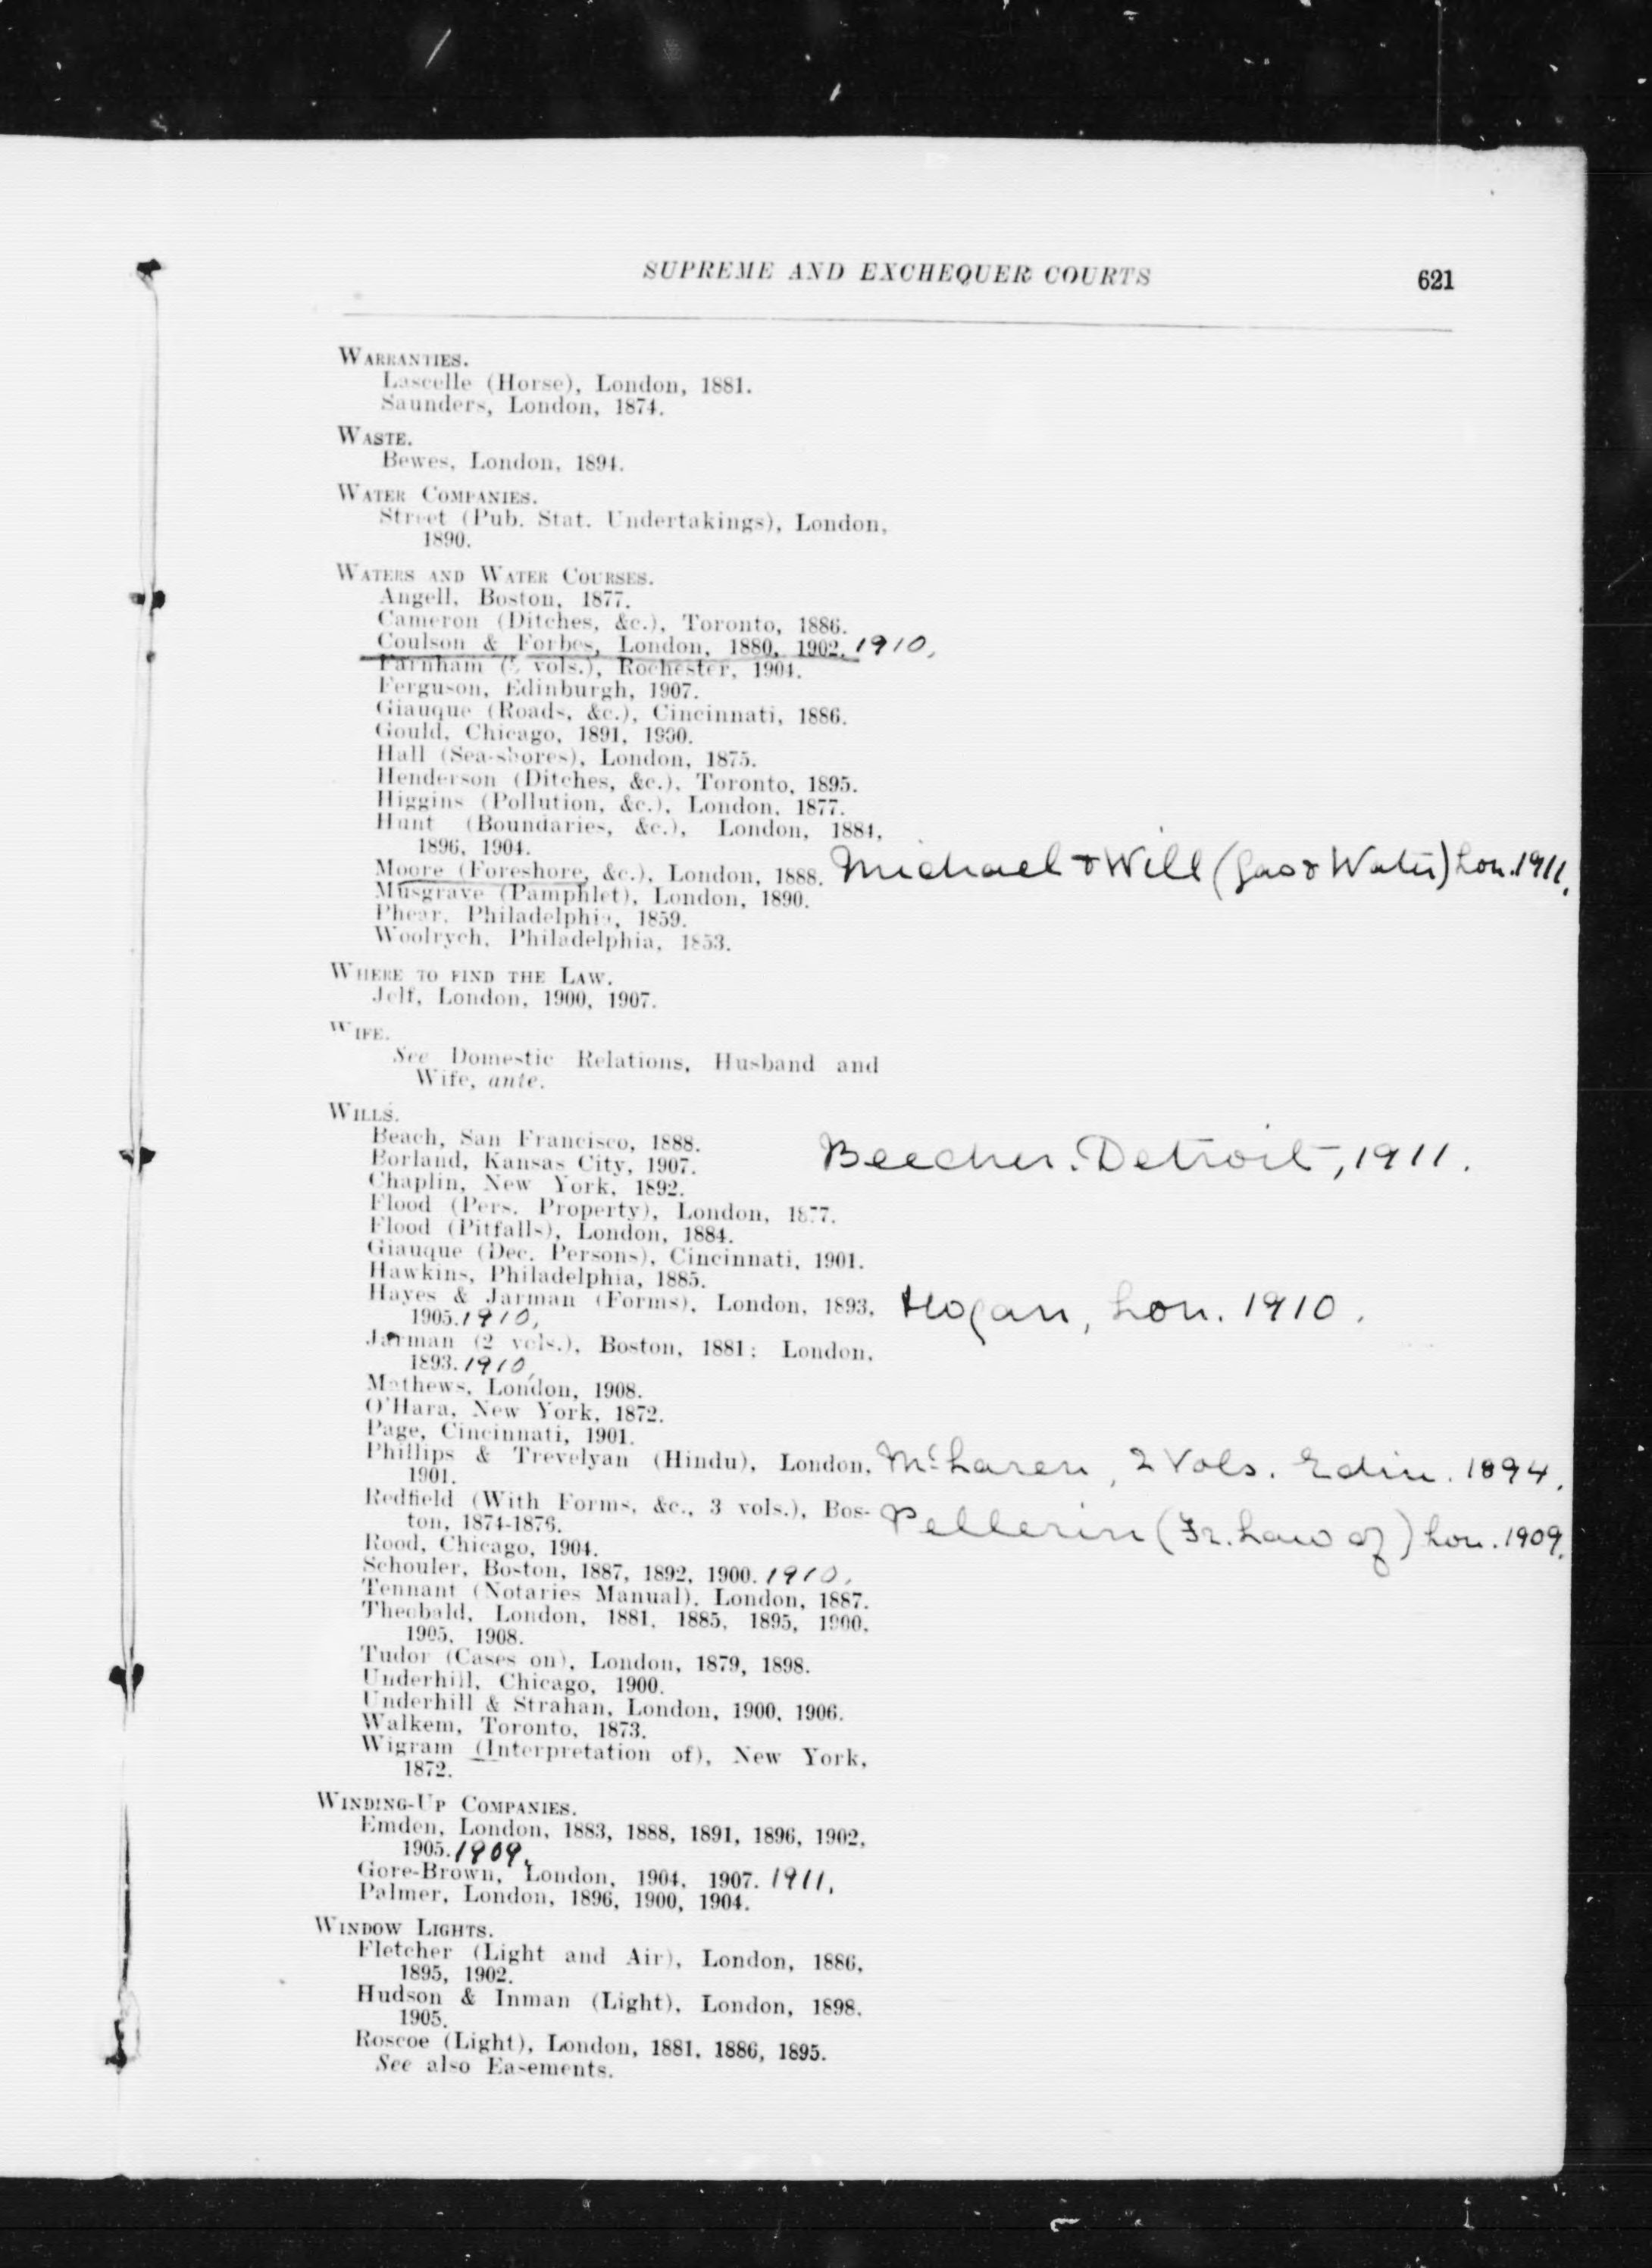 SUPREME AND EXCHEQUER COURTS 621
WARRANTIES.
Lascelle (Horse), London, 1881.
Saunders, London, 1874.
WASTE.
Bewes, London, 1894.
WATER COMPANIES.
Street (Pub. Stat. Undertakings), London,
1890.
WATERS AND WATER COURSES.
Angell, Boston, 1877.
Cameron (Ditches, &c.), Toronto, 1886.
Coulson & Forbes, London, 1880, 1902. 1910.
Farnham ( vols.), Rochester, 1904.
Ferguson, Edinburgh, 1907.
Giauque (Roads, &c.), Cincinnati, 1886.
Gould, Chicago, 1891, 1900.
Hall (Sea-shores), London, 1875.
Henderson (Ditches, &c.), Toronto, 1895.
Higgins (Pollution, &c.), London, 1877.
Hunt (Boundaries, &c.), London, 1884,
1896, 1904.
Moore (Foreshore, &c.), London, 1888. Michael & Will (Gas & Water) Lon. 1911.
Musgrave (Pamphlet), London, 1890.
Phear, Philadelphia, 1859.
Woolrych, Philadelphia, 1853.
WHERE TO FIND THE LAW.
Jelf, London, 1900, 1907.
WIFE.
See Domestic Relations, Husband and
Wife, ante.
WILLS.
Beach, San Francisco, 1888. Beecher. Detroit, 1911.
Borland, Kansas City, 1907.
Chaplin, New York, 1892.
Flood (Pers. Property), London, 1877.
Flood (Pitfalls), London, 1884.
Giauque (Dec. Persons), Cincinnati, 1901.
Hawkins, Philadelphia, 1885.
Hayes & Jarman (Forms), London, 1893, Hogan, Lon. 1910.
1905. 1910,
Jarman (2 vols.), Boston, 1881; London,
1893. 1910,
Mathews, London, 1908.
O'Hara, New York, 1872.
Page, Cincinnati, 1901.
Phillips & Trevelyan (Hindu), London, McLaren, 2 Vols. Edin. 1894.
1901.
Redfield (With Forms, &c., 3 vols.), Bos- Pellerin (Fr. Law of) Lon. 1909.
ton, 1874-1876.
Rood, Chicago, 1904.
Schouler, Boston, 1887, 1892, 1900. 1910.
Tennant (Notaries Manual), London, 1887.
Theobald, London, 1881, 1885, 1895, 1900,
1905, 1908.
Tudor (Cases on), London, 1879, 1898.
Underhill, Chicago, 1900.
Underhill & Strahan, London, 1900, 1906.
Walkem, Toronto, 1873.
Wigram (Interpretation of), New York,
1872.
WINDING-UP COMPANIES.
Emden, London, 1883, 1888, 1891, 1896, 1902,
1905. 1909.
Gore-Brown, London, 1904, 1907. 1911.
Palmer, London, 1896, 1900, 1904.
WINDOW LIGHTS.
Fletcher (Light and Air), London, 1886,
1895, 1902.
Hudson & Inman (Light), London, 1898,
1905.
Roscoe (Light), London, 1881, 1886, 1895.
See also Easements.